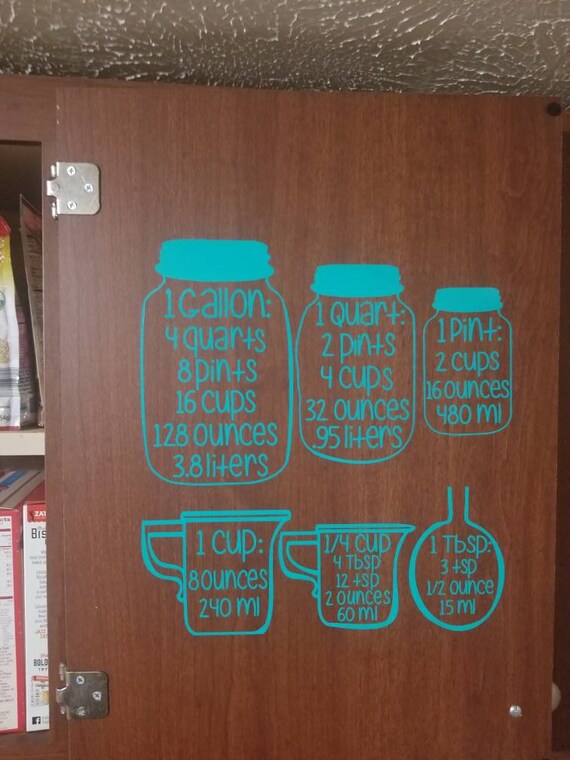 1 Gallon:
4 quarts
8 pints
16 cups
128 ounces
3.8 liters
1 Quart:
2 pints
4 cups
32 ounces
.95 liters
1 Pint:
2 cups
16 ounces
480 ml
1 Cup:
8 ounces
240 ml
1/4 Cup
4 Tbsp
12 tsp
2 ounces
60 ml
1 Tbsp:
3 tsp
1/2 ounce
15 ml
ZAT
Bis
BOLD